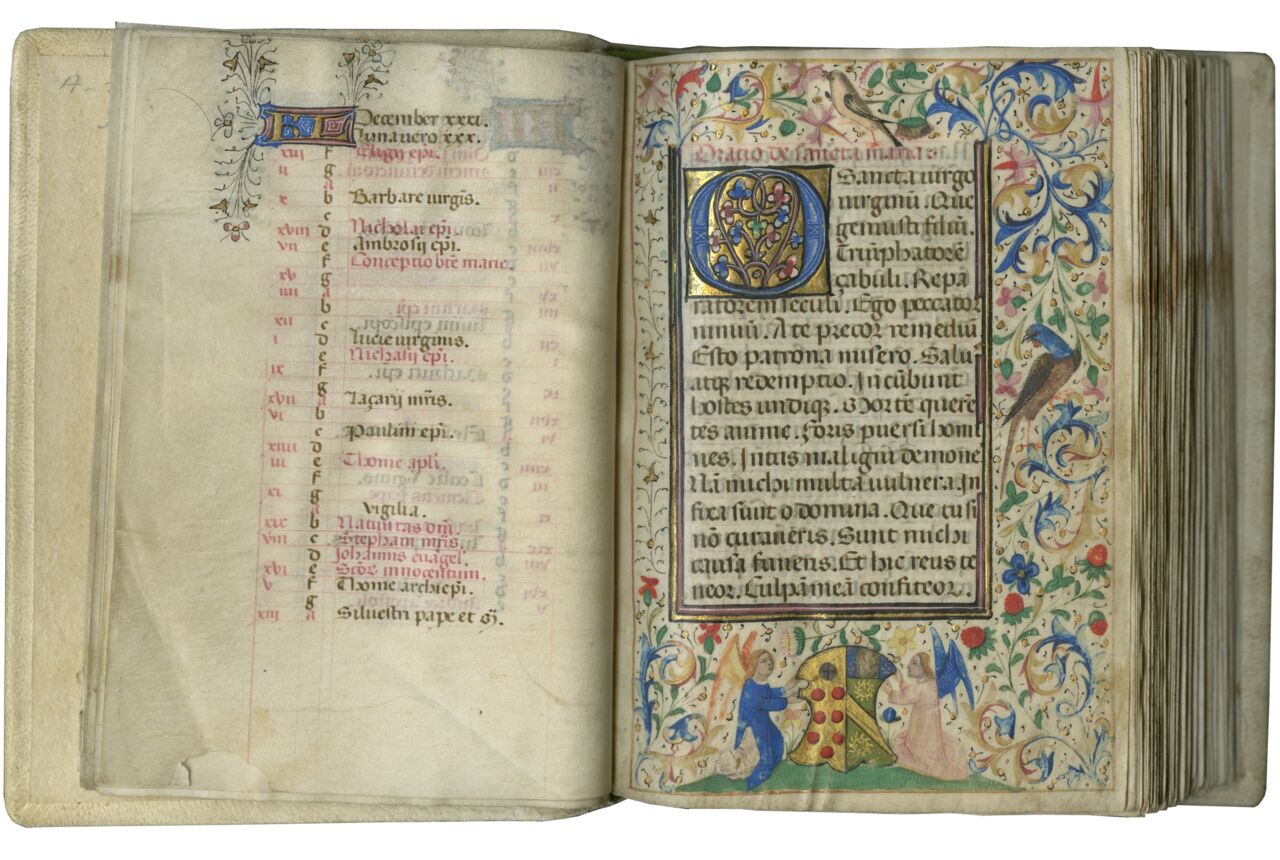 KL December xxxi.
Luna vero xxx.
xiii f Eligii epi.
ii g
a
x b Barbare virgis.
c
xviii d Nicholai epi.
vii e Ambrosij epi.
f Conceptio bte marie.
xv g
iiii a
b
xii c
i d Lucie virginis.
e Nichasij epi.
ix f
g
xvii a Laçarij mris.
vi b
c Paulini epi.
xiiii d
iii e Thome apli.
f
xi g
a vigilia.
xix b Nativitas dni.
viii c Stephani mris.
d Johannis evagel.
xvi e Scor innocentum.
v f Thome archiepi.
g
xiii a Silvestri pape et
Oratio de sancta maria
O Sancta virgo
virginū. Que
genuisti filiū.
Triūphatorē
çabuli. Repa
ratorem seculi. Ego peccator
nimiū. A te precor remediū
Esto patrona misero. Salus
atqꝫ redemptio. Incūbunt
hostes undiqꝫ. Mortē quere
tes anime. Foris pversi homi
nes. Intus maligni demone
Nā michi multa vulnera In
fixa sunt o domina. Que tu si
nō curaveris. Sunt michi
causa funeris. Et hic reus te
neor. Culpā meā confiteor.